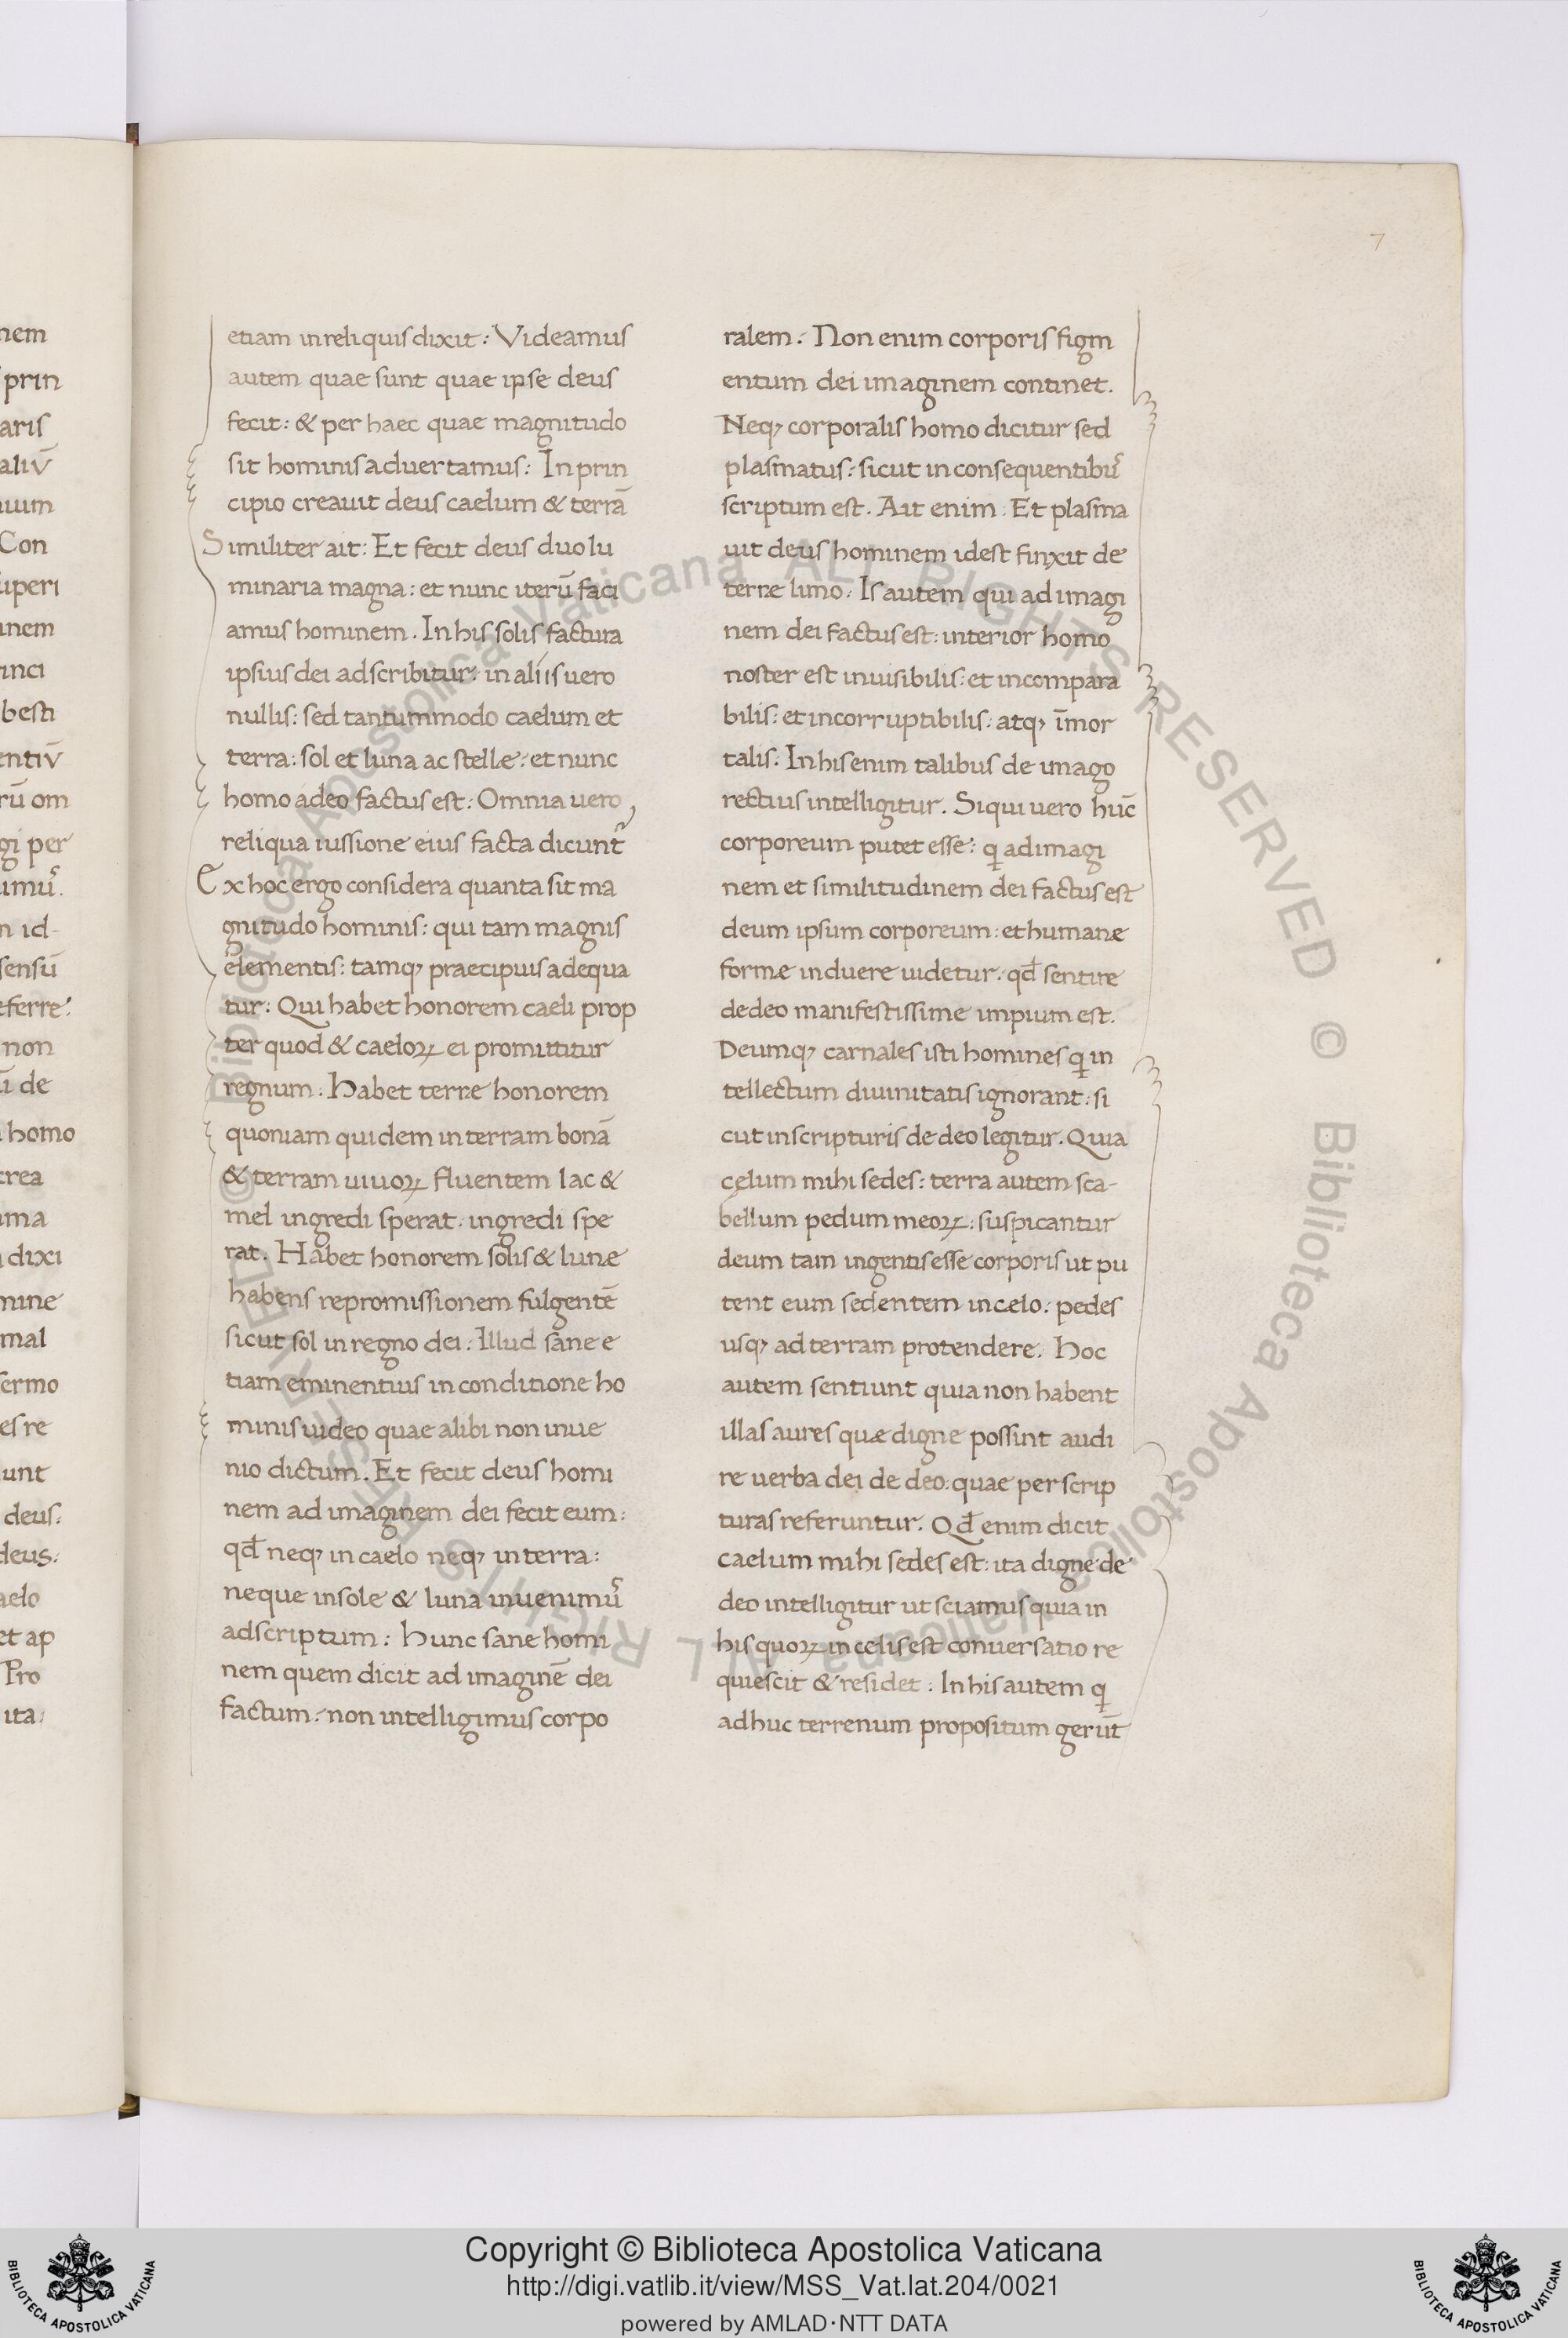 nem
prin
aris
aliv̄
uum
Con
uperi
inem
inci
besti
entiv̄
rū om
gi per
imuꝰ.
n id-
sensū
eferre:
non
ū de
homo
crea
ima
dixi
mine
mal
sermo
es re
unt
deus:
deus:
aelo
et ap
Pro
ita:
7
etiam in reliquis dixit: Videamus
autem quae sunt quae ipse deus
fecit: & per haec quae magnitudo
sit hominis aduertamus: In prin
cipio creauit deus caelum & terrā
Similiter ait: Et fecit deus duo lu
minaria magna: et nunc iterū faci
amus hominem. In his solis factura
ipsius dei adscribitur: in aliis uero
nullis: sed tantummodo caelum et
terra: sol et luna ac stellæ: et nunc
homo adeo factus est: Omnia uero,
reliqua iussione eius facta dicunt᷑
Ex hoc ergo considera quanta sit ma
gnitudo hominis: qui tam magnis
elementis: tamqꝫ praecipuis adequa
tur: Qui habet honorem caeli prop
ter quod & caeloꝝ ei promittitur
regnum: Habet terræ honorem
quoniam quidem in terram bonā
& terram uiuoꝝ fluentem lac &
mel ingredi sperat: ingredi spe
rat. Habet honorem solis & lunæ
habens repromissionem fulgentē
sicut sol in regno dei: Illud sane e
tiam eminentius in conditione ho
minis uideo quae alibi non inue
nio dictum. Et fecit deus homi
nem ad imaginem dei fecit eum:
qđ neqꝫ in caelo neqꝫ in terra:
neque in sole & luna inuenimuꝰ
adscriptum: Hunc sane homi
nem quem dicit ad imaginē dei
factum: non intelligimus corpo
ralem: Non enim corporis figm
entum dei imaginem continet.
Neqꝫ corporalis homo dicitur sed
plasmatus: sicut in consequentibuꝰ
scriptum est. Ait enim: Et plasma
uit deus hominem idest finxit de
terræ limo: Is autem qui ad imagi
nem dei factus est: interior homo
noster est inuisibilis: et incompara
bilis: et incorruptibilis: atqꝫ īmor
talis: In his enim talibus de imago
rectius intelligitur. Siqui uero hūc
corporeum putet esse: qͥ ad imagi
nem et similitudinem dei factus est
deum ipsum corporeum: et humanæ
formæ induere uidetur: qđ sentire
de deo manifestissime impium est.
Deumqꝫ carnales isti homines qͥ in
tellectum diuinitatis ignorant: si
cut in scripturis de deo legitur. Quia
cęlum mihi sedes: terra autem sca-
bellum pedum meoꝝ: suspicantur
deum tam ingentis esse corporis ut pu
tent eum sedentem in celo: pedes
usqꝫ ad terram protendere: Hoc
autem sentiunt quia non habent
illas aures quæ digne possint audi
re uerba dei de deo: quae per scrip
turas referuntur. Qđ enim dicit
caelum mihi sedes est: ita digne de
deo intelligitur ut sciamus quia in
his quoꝝ in celis est conuersatio re
quiescit & residet: In his autem qͥ
adhuc terrenum propositum gerūt
© Biblioteca Apostolica Vaticana ALL RIGHTS RESERVED © Biblioteca Apostolica Vaticana ALL RIGHTS RESERVED
Copyright © Biblioteca Apostolica Vaticana
http://digi.vatlib.it/view/MSS_Vat.lat.204/0021
powered by AMLAD·NTT DATA
BIBLIOTECA APOSTOLICA VATICANA
BIBLIOTECA APOSTOLICA VATICANA